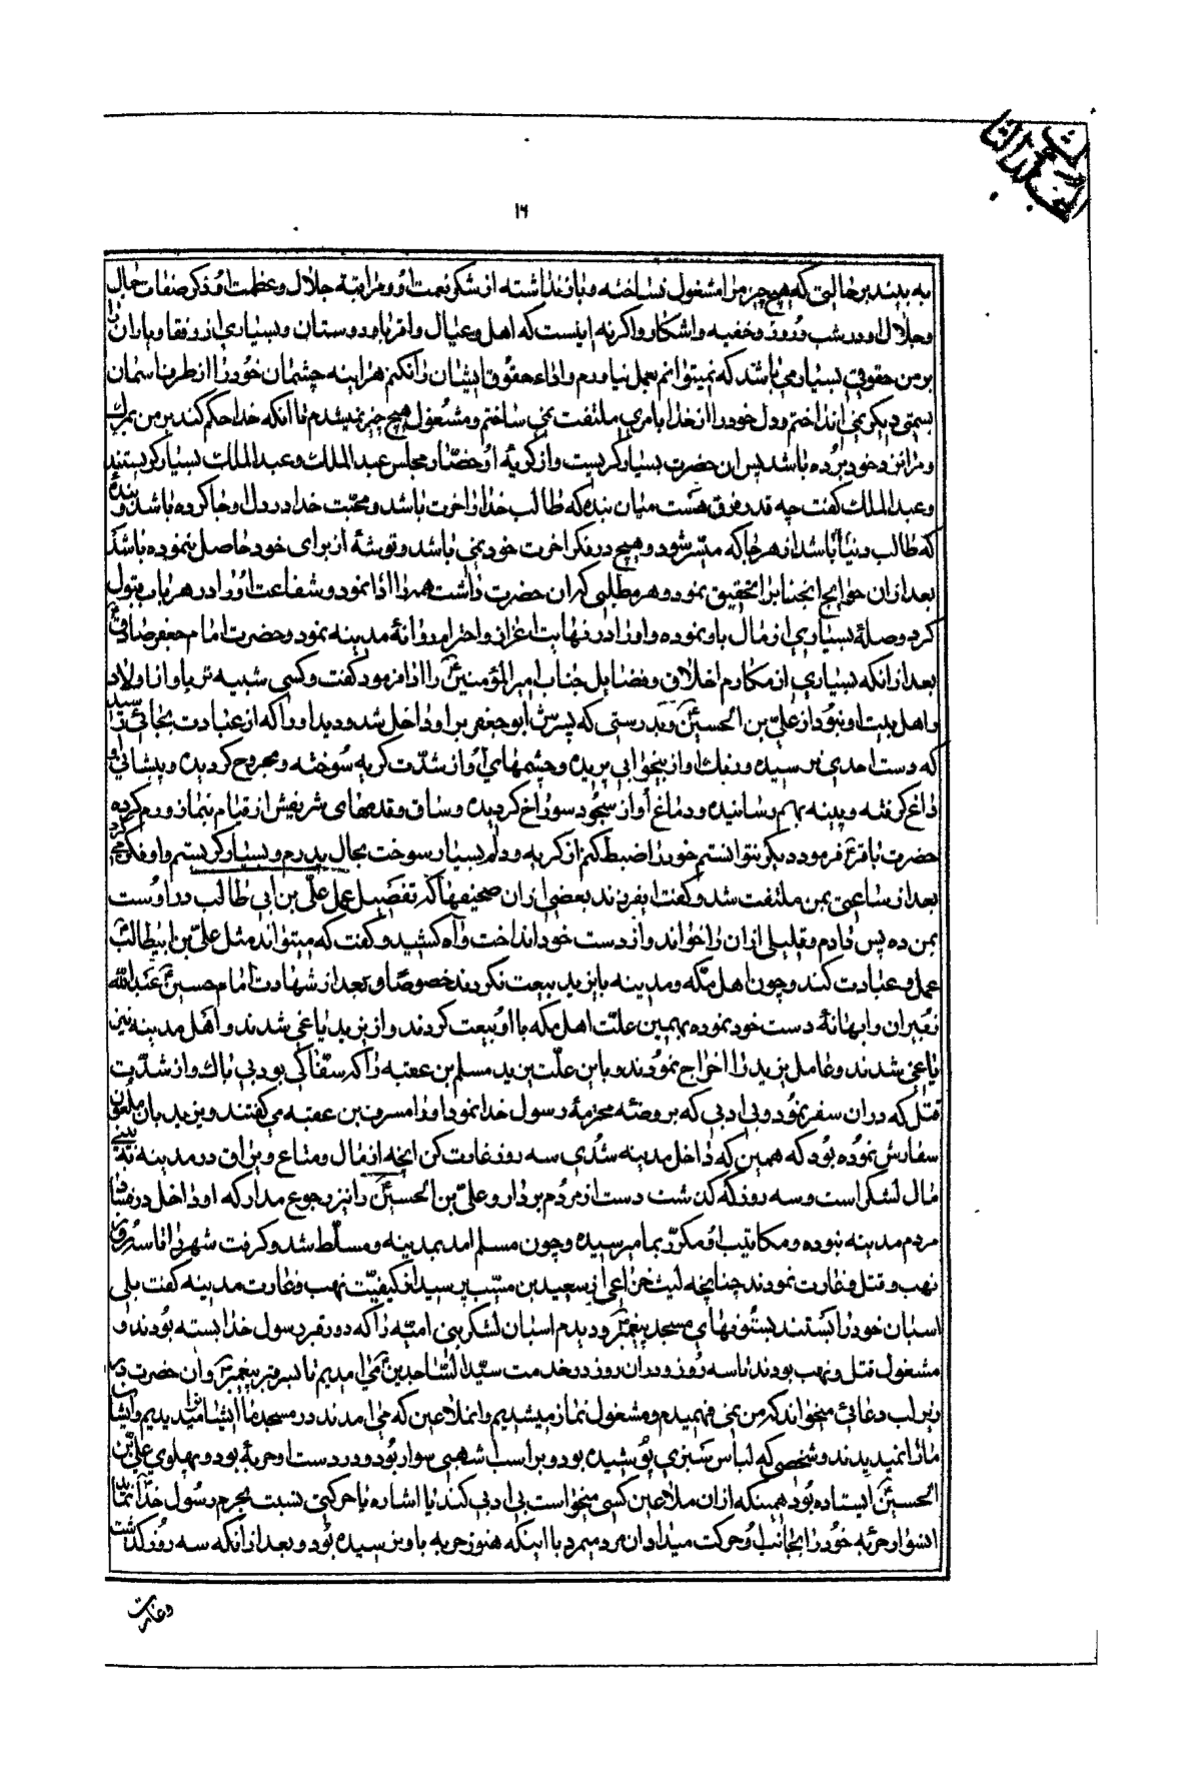 المجلد الثالث
١٦
به بیند بر حالتی که هیچ چیز مرا مشغول نساخته و باز نداشته از شکر نعمت او و مراقبه جلال و عظمت او و ذکر صفات جمال
و جلال او در شب و روز و خفیه و اشکار و اگر نه اینست که اهل و عیال و اقربا و دوستان و بسیاری از رفقا و یاران را
بر من حقوقی بسیار می باشد که نمیتوانم بعمل نیاورم و اداء حقوق ایشان را نکنم هراینه چشمان خود را از طرف اسمان
بسمتی دیگر نمی انداختم و دل خود را از خدا بامری ملتفت نمی ساختم و مشغول هیچ چیز نمیشدم تا انکه خدا حکم کند بر من بمرگ
و مرا نزد خود برده باشد پس ان حضرت بسیار گریست و از گریه او حضار مجلس عبد الملک و عبد الملک بسیار گریستند
و عبد الملک گفت چه قدر فرق هست میان بنده که طالب خدا و اخرت باشد و محبت خدا در دل او جا کرده باشد و بنده
که طالب دنیا باشد از هر جا که میسر شود و هیچ در فکر اخرت خود نمی باشد و توشه از برای خود حاصل ننموده باشد
بعد از ان حوایج انجناب را تحقیق نمود و هر مطلبی که ان حضرت داشت همه را ادا نمود و شفاعت او را در هر باب قبول
کرد و صله بسیاری از مال باو نموده و او را در نهایت اعزاز و احترام روانه مدینه نمود و حضرت امام جعفر صادق
بعد از انکه بسیاری از مکارم اخلاق و فضایل جناب امیر المؤمنین را ادا فرمود گفت و کسی شبیه تر باو از اولاد
و اهل بیت او نبود از علی بن الحسین و بدرستی که پسرش ابو جعفر بر او داخل شد و دید او را که از عبادت بجائی رسیده
که دست احدی نرسیده و رنگ او از بیخوابی پریده و چشمهای او از شدت گریه سوخته و مجروح گردیده و پیشانی او
داغ گرفته و پینه بهم رسانیده و دماغ او از سجود سوراخ گردیده و ساق و قدمهای شریفش از قیام بنماز ورم کرده
حضرت باقر فرمود دیگر نتوانستم خود را ضبط کنم از گریه و دلم بسیار سوخت بحال پدرم و بسیار گریستم و او فکر میکرد
بعد از ساعتی بمن ملتفت شد و گفت ایفرزند بعضی از ان صحیفها که تفصیل عمل علی بن ابی طالب در اوست
بمن ده پس دادم و قلیلی از ان را خواند و از دست خود انداخت و آه کشید و گفت که میتواند مثل علی بن ابیطالب
عمل و عبادت کند و چون اهل مکه و مدینه با یزید بیعت نکردند خصوصا و بعد از شهادت امام حسین عبد الله
زبیر ان را بهانه دست خود نموده بهمین علت اهل مکه با او بیعت کردند و از یزید یاغی شدند و اهل مدینه نیز
یاغی شدند و عامل یزید را اخراج نمودند و باین علت یزید مسلم بن عقبه را که سفاکی بود بی باک و از شدت
قتل که در ان سفر نمود و بی ادبی که بروضه محترمه رسول خدا نمود او را مسرف بن عقبه می گفتند و یزید بان ملعون
سفارش نموده بود که همین که داخل مدینه شدی سه روز غارت کن انچه از مال و متاع و یراق در مدینه
مال لشکر است و سه روز که گذشت دست از مردم بردار و علی بن الحسین را نیز رجوع مدار که او داخل در فساد
مردم مدینه نبوده و مکاتیب او مکرر بما میرسیده و چون مسلم امد بمدینه و مسلط شد و گرفت شهر را تا سه روز
نهب و قتل و غارت نمودند چنانچه لیث خزاعی از سعید بن مسیب پرسید از کیفیت نهب و غارت مدینه گفت بلی
اسبان خود را بستند بستونهای مسجد پیغمبر و دیدم اسبان لشکر بنی امیه را که دور قبر رسول خدا بسته بودند و
مشغول قتل و نهب بودند تا سه روز و در ان روز در خدمت سید الساجدین می امدیم تا بسر قبر پیغمبر و ان حضرت در
زیر لب دعائی میخواند که من نمی فهمیدم و مشغول نماز میشدیم و انملاعین که می امدند در مسجد ما ایشانرا میدیدیم و ایشان
ما را نمیدیدند و شخصی که لباس سبزی پوشیده بود و بر اسب شهبی سوار بود و در دست او حربه بود و پهلوی علی بن
الحسین ایستاده بود همینکه از ان ملاعین کسی میخواست بی ادبی کند یا اشاره یا حرکتی نسبت بحرم رسول خدا نماید
انسوار حربه خود را بجانب او حرکت میداد و ان مرد میمرد با اینکه هنوز حربه باو نرسیده بود و بعد از انکه سه روز گذشت
و غارت